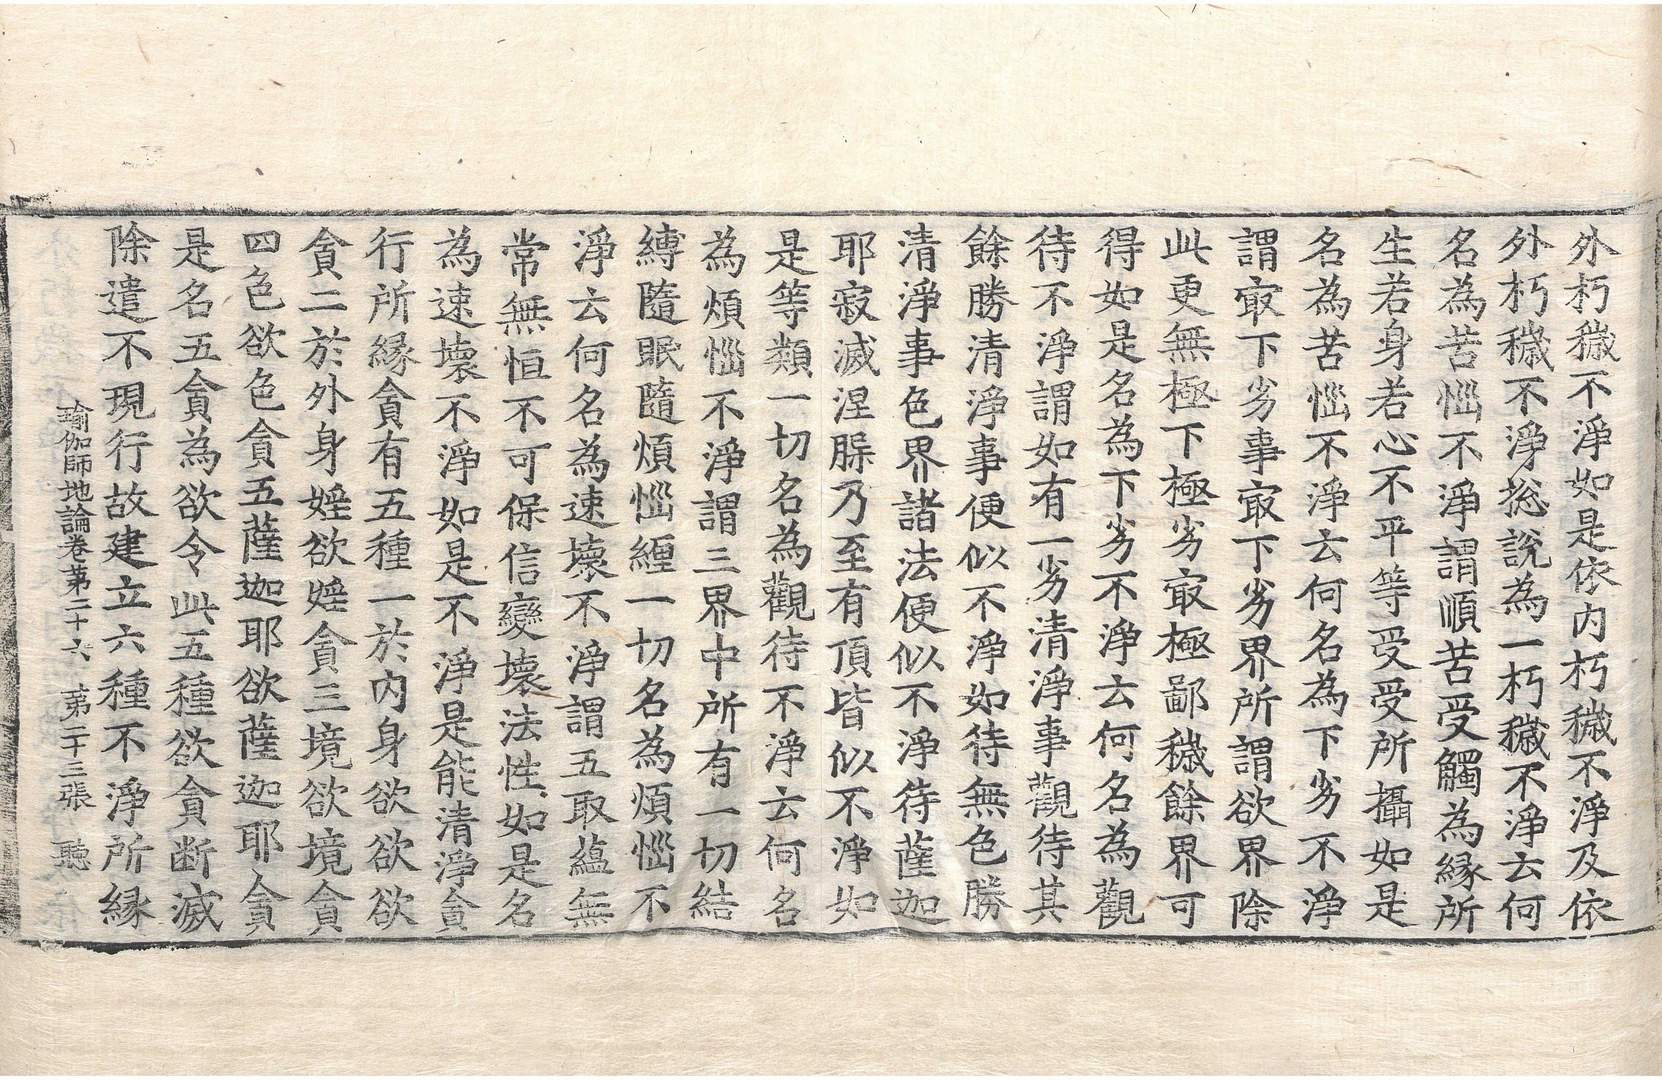 外朽穢不淨如是依内朽穢不淨及依
外朽穢不淨揔說為一朽穢不淨云何
名為苦惱不淨謂順苦受觸為緣所
生若身若心不平等受受所攝如是
名為苦惱不淨云何名為下劣不淨
謂㝡下劣事㝡下劣界所謂欲界除
此更無極下極劣㝡極鄙穢餘界可
得如是名為下劣不淨云何名為觀
待不淨謂如有一劣清淨事觀待其
餘勝清淨事便似不淨如待無色勝
清淨事色界諸法便似不淨待薩迦
耶寂滅涅槃乃至有頂皆似不淨如
是等類一切名為觀待不淨云何名
為煩惱不淨謂三界中所有一切結
縛隨眠隨煩惱纏一切名為煩惱不
淨云何名為速壞不淨謂五取蘊無
常無恒不可保信變壞法性如是名
為速壞不淨如是不淨是能清淨貪
行所緣貪有五種一於内身欲欲欲
貪二於外身婬欲婬貪三境欲境貪
四色欲色貪五薩迦耶欲薩迦耶貪
是名五貪為欲令此五種欲貪断滅
除遣不現行故建立六種不淨所緣
瑜伽師地論卷苐二十六 苐二十三張 聽